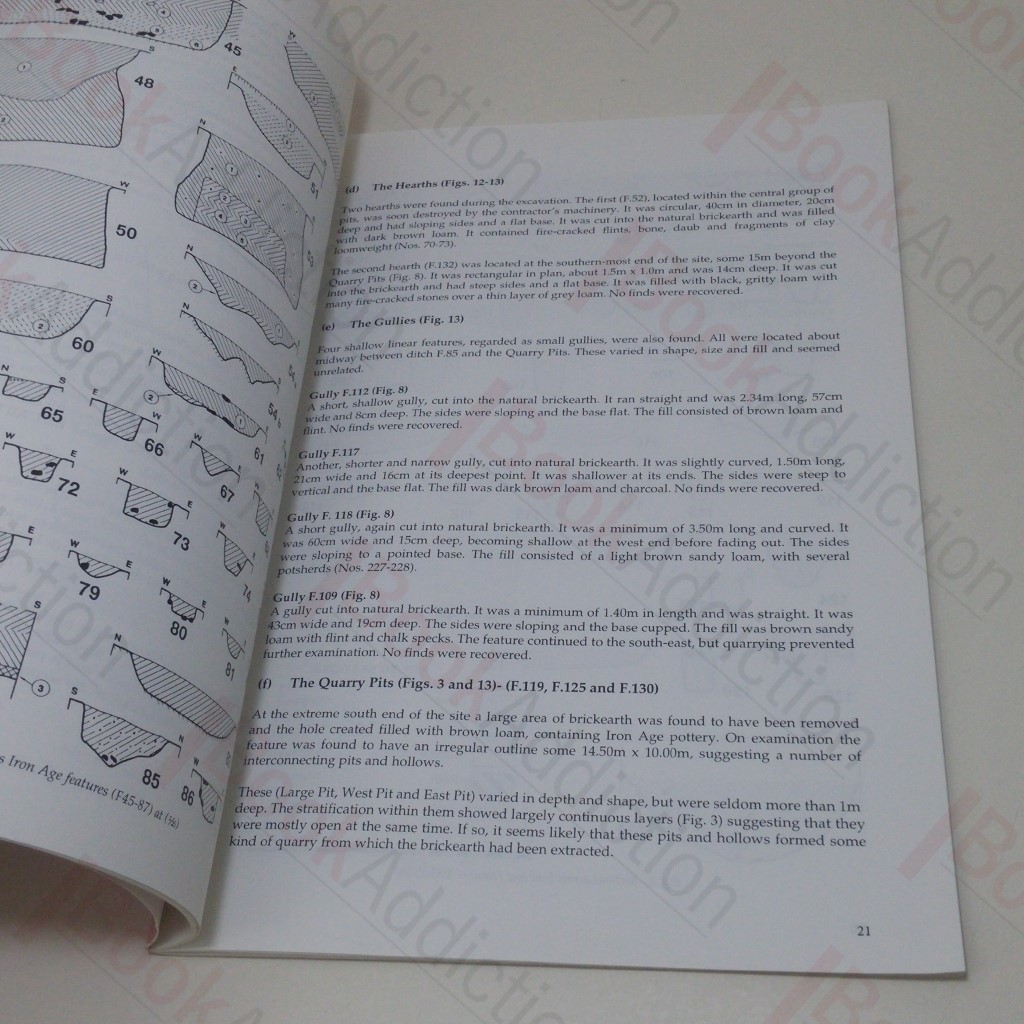 45
48
51
50
60
65
66
61
67
72
73
74
79
80
81
85
86
s Iron Age features (F45-87) at (⅟₂₅)
(d) The Hearths (Figs. 12-13)
Two hearths were found during the excavation. The first (F.52), located within the central group of
pits, was soon destroyed by the contractor's machinery. It was circular, 40cm in diameter, 20cm
deep and had sloping sides and a flat base. It was cut into the natural brickearth and was filled
with dark brown loam. It contained fire-cracked flints, bone, daub and fragments of clay
loomweight (Nos. 70-73).
The second hearth (F.132) was located at the southern-most end of the site, some 15m beyond the
Quarry Pits (Fig. 8). It was rectangular in plan, about 1.5m x 1.0m and was 14cm deep. It was cut
into the brickearth and had steep sides and a flat base. It was filled with black, gritty loam with
many fire-cracked stones over a thin layer of grey loam. No finds were recovered.
(e) The Gullies (Fig. 13)
Four shallow linear features, regarded as small gullies, were also found. All were located about
midway between ditch F.85 and the Quarry Pits. These varied in shape, size and fill and seemed
unrelated.
Gully F.112 (Fig. 8)
A short, shallow gully, cut into the natural brickearth. It ran straight and was 2.34m long, 57cm
wide and 8cm deep. The sides were sloping and the base flat. The fill consisted of brown loam and
flint. No finds were recovered.
Gully F.117
Another, shorter and narrow gully, cut into natural brickearth. It was slightly curved, 1.50m long,
21cm wide and 16cm at its deepest point. It was shallower at its ends. The sides were steep to
vertical and the base flat. The fill was dark brown loam and charcoal. No finds were recovered.
Gully F. 118 (Fig. 8)
A short gully, again cut into natural brickearth. It was a minimum of 3.50m long and curved. It
was 60cm wide and 15cm deep, becoming shallow at the west end before fading out. The sides
were sloping to a pointed base. The fill consisted of a light brown sandy loam, with several
potsherds (Nos. 227-228).
Gully F.109 (Fig. 8)
A gully cut into natural brickearth. It was a minimum of 1.40m in length and was straight. It was
43cm wide and 19cm deep. The sides were sloping and the base cupped. The fill was brown sandy
loam with flint and chalk specks. The feature continued to the south-east, but quarrying prevented
further examination. No finds were recovered.
(f) The Quarry Pits (Figs. 3 and 13)- (F.119, F.125 and F.130)
At the extreme south end of the site a large area of brickearth was found to have been removed
and the hole created filled with brown loam, containing Iron Age pottery. On examination the
feature was found to have an irregular outline some 14.50m x 10.00m, suggesting a number of
interconnecting pits and hollows.
These (Large Pit, West Pit and East Pit) varied in depth and shape, but were seldom more than 1m
deep. The stratification within them showed largely continuous layers (Fig. 3) suggesting that they
were mostly open at the same time. If so, it seems likely that these pits and hollows formed some
kind of quarry from which the brickearth had been extracted.
21
BookAddiction